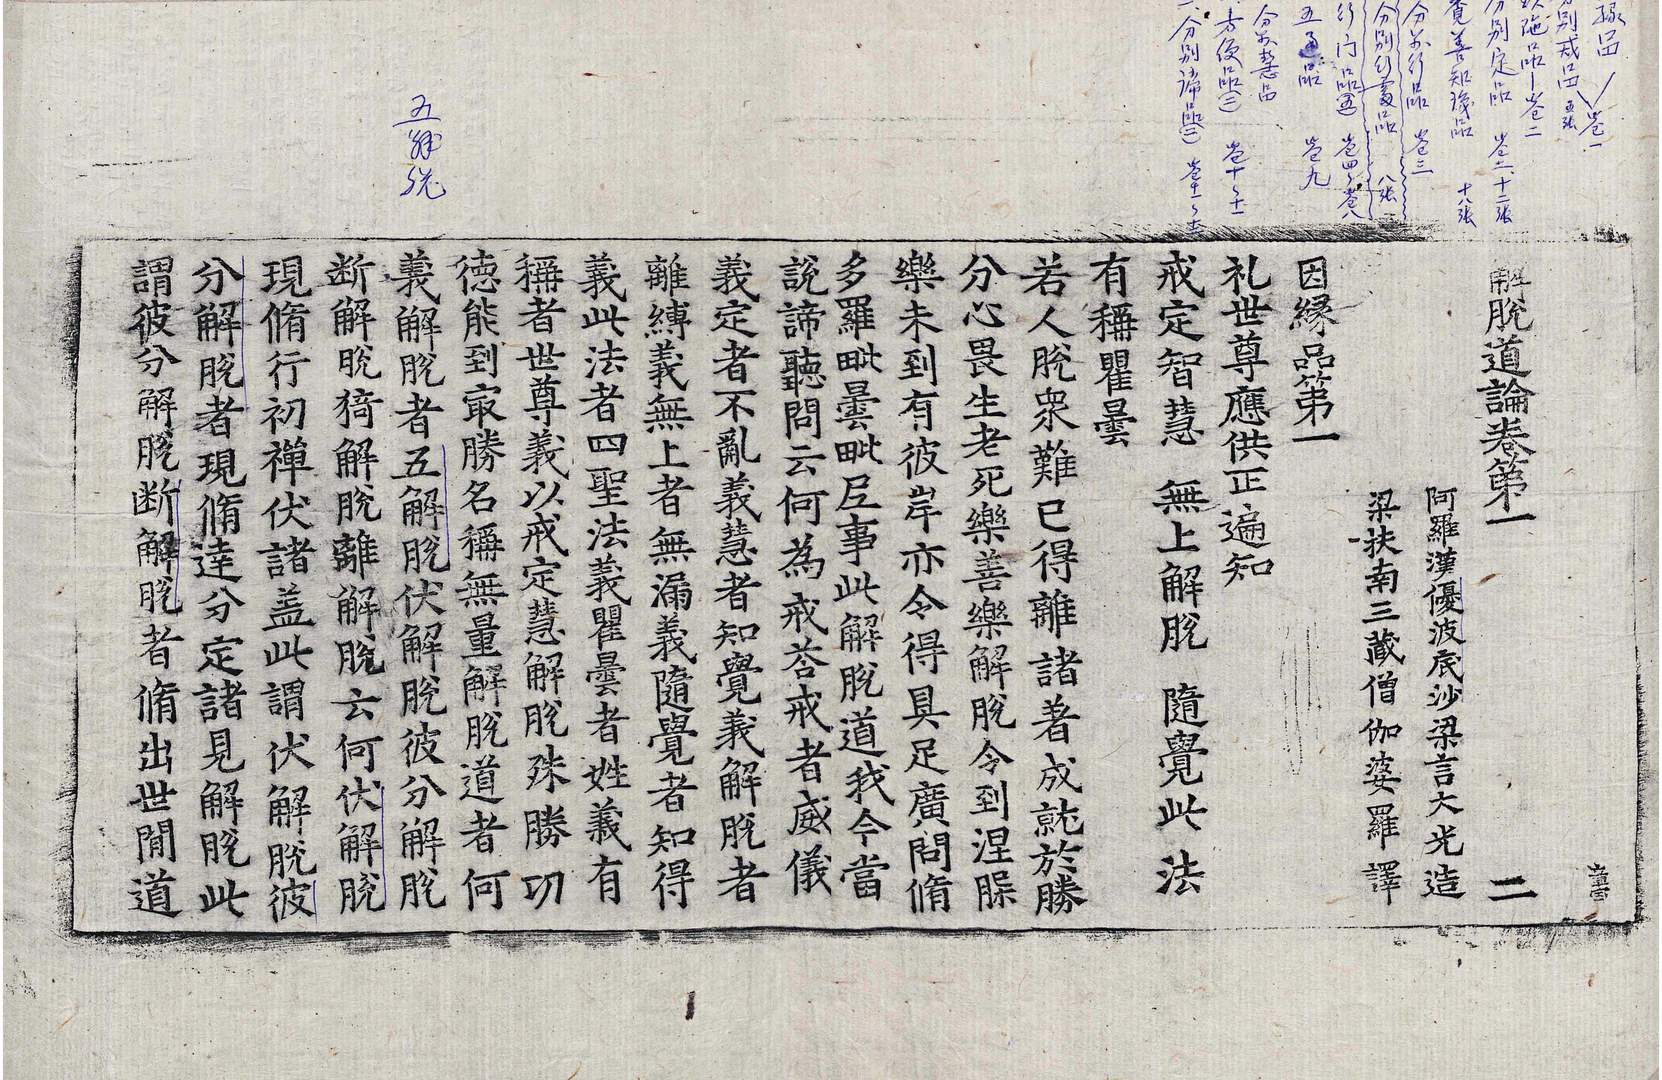 解脫道論卷第一
二
阿羅漢優波底沙梁言大光造
梁扶南三藏僧伽婆羅譯
因縁品第一
礼世尊應供正遍知
戒定智慧 無上解脫 隨覺此法
有稱瞿曇
若人脫衆難已得離諸著成就於勝
分心畏生老死樂善樂解脫令到涅槃
樂未到有彼岸亦令得具足廣問脩
多羅毗曇毗尼事此解脫道我今當
說諦聽問云何為戒荅戒者威儀
義定者不亂義慧者知覺義解脫者
離縛義無上者無漏義隨覺者知得
義此法者四聖法義瞿曇者姓義有
稱者世尊義以戒定慧解脫殊勝功
徳能到㝡勝名稱無量解脫道者何
義解脫者五解脫伏解脫彼分解脫
断解脫猗解脫離解脫云何伏解脫
現脩行初禪伏諸盖此謂伏解脫彼
分解脫者現脩達分定諸見解脫此
謂彼分解脫断解脫者脩出世間道
縁品
別戒品 卷一
施品 卷二
分別定品 卷二 十二張
覓善知識品 十八張
分別行品 卷三
分別行處品 八張
行门品 卷四 卷八
五通品 卷九
分別慧品
方便品 卷十 十一
分別諦品 卷十一
五解脫